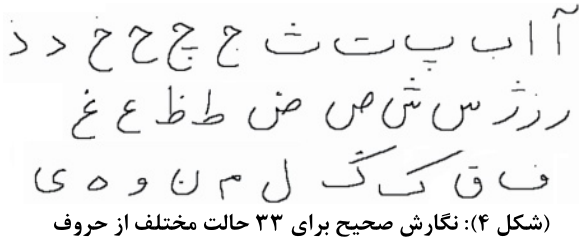 آ ا ب پ ت ث ج چ ح خ د ذ
ر ز ژ س ش ص ض ط ظ ع غ
ف ق ک گ ل م ن و ه ی
(شکل ۴): نگارش صحیح برای ۳۳ حالت مختلف از حروف